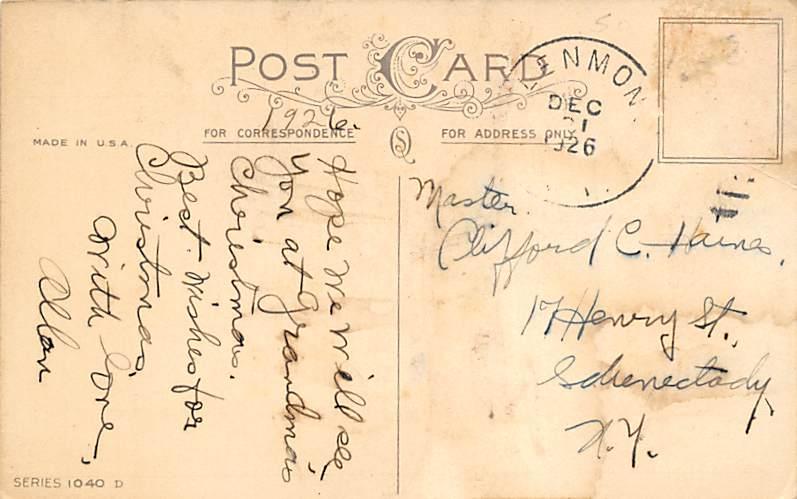 POST CARD
1926.
FOR CORRESPONDENCE
FOR ADDRESS ONLY
MADE IN U.S.A.
DEC
1926
Hope We will see
you at grandma's
Christmas.
Best Wishes for
Christmas,
With love,
Allan
Master
Clifford C. Haines,
17 Henry St.,
Schenectady,
N.Y.
SERIES 1040 D